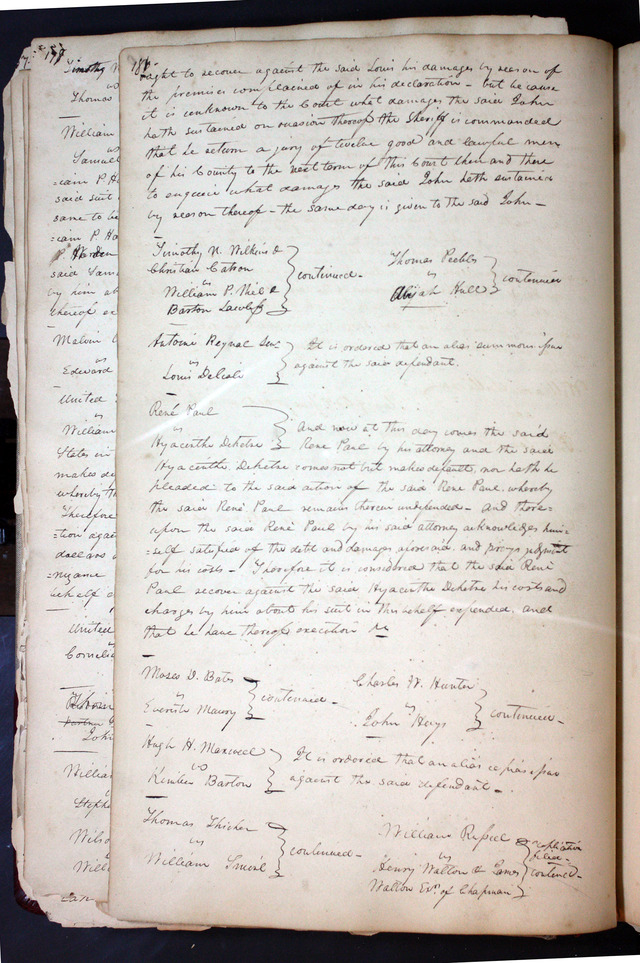 188
ought to recover against the said Louis his damages by reason of
the premises complained of in his declaration - but because
it is unknown to the Court what damages the said John
hath sustained on occasion thereof the Sheriff is commanded
that he return a jury of twelve good and lawful men
of his County to the next term of this Court then and there
to enquire what damages the said John hath sustained
by reason thereof - the same day is given to the said John -
Timothy N. Wilkins &
Christian
vs
William P.
Barton
continued -
Thomas Peebles
vs
Abijah Hull
continued
Antoine Reynal
vs
Louis
It is ordered that an alias summons issue
against the said defendant.
René Paul
vs
Hyacinthe Dehetre
And now at this day comes the said
René Paul by his attorney and the said
Hyacinthe Dehetre comes not but makes default, nor hath he
pleaded to the said action of the said René Paul, whereby
the said René Paul remains therein undefended - and there=
upon the said René Paul by his said attorney acknowledges him=
=self satisfied of the debt and damages aforesaid and prays judgment
for his costs - Therefore it is considered that the said René
Paul recover against the said Hyacinthe Dehetre his costs and
charges by him about his suit in this behalf expended, and
that he have thereof execution &c
Moses D. Bates
vs
Everiste Maury
continued -
Charles W. Hunter
vs
John Hays
continued -
Hugh H. Maxwell
vs
Kimber Barton
It is ordered that an alias capias issue
against the said defendant -
Thomas
vs
William
continued -
William Russel
vs
Henry Walton & James
Walton Exrs. of Chapman
replication
filed -
contind -
Timothy
vs
Thomas
William
vs
Samuel
said suit
same to be
Harden
said Sam
by him
thereof
vs
Edward
United
vs
William
States in
makes de
whereby th
Therefore
=tion agai
United
vs
John
William
vs
Steph